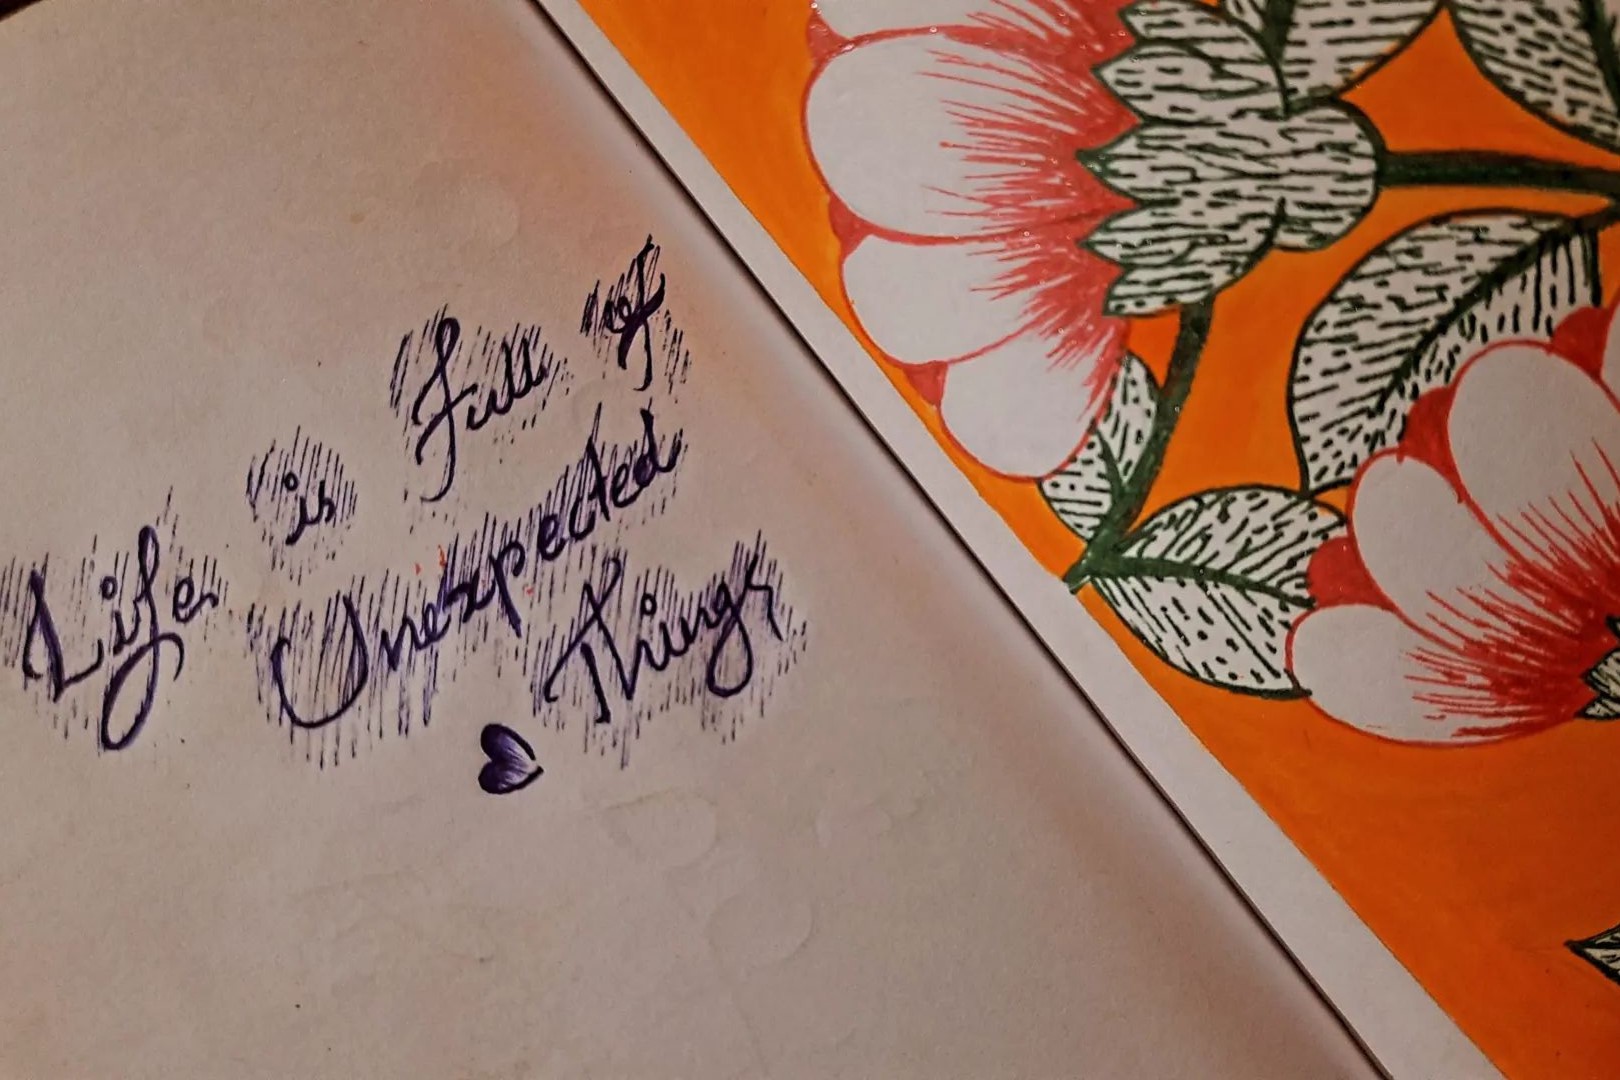 Life is Full of
Unexpected
Things